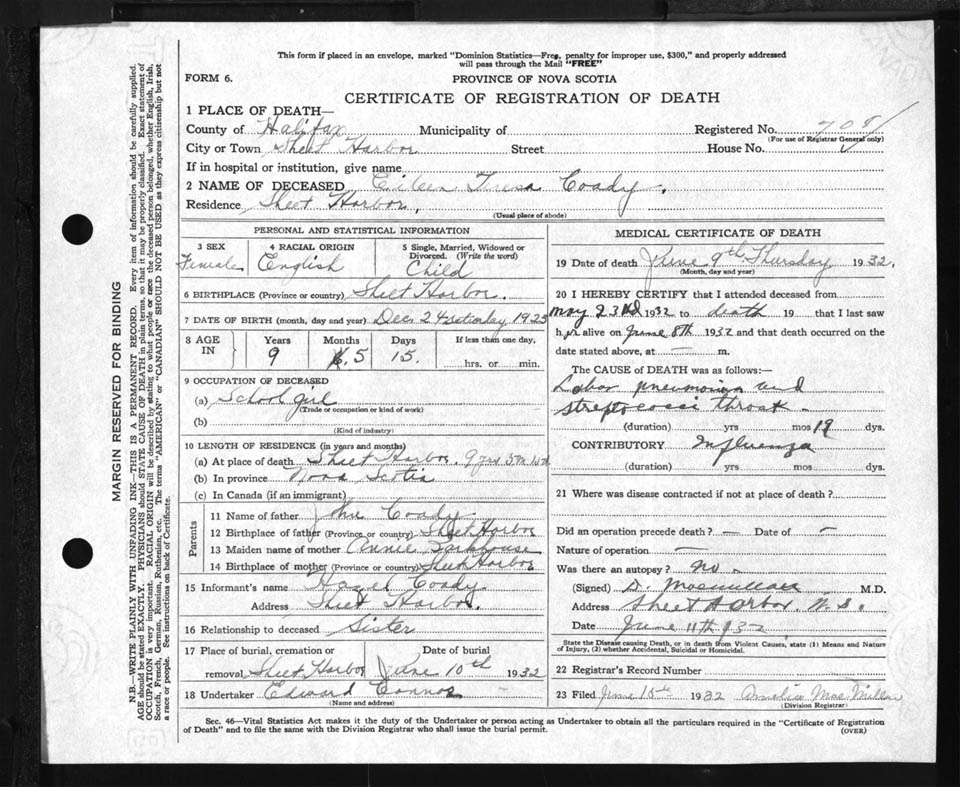 This form if placed in an envelope, marked "Dominion Statistics—Free, penalty for improper use, $300," and properly addressed
will pass through the Mail "FREE"
FORM 6.
PROVINCE OF NOVA SCOTIA
CERTIFICATE OF REGISTRATION OF DEATH
1 PLACE OF DEATH—
County of Halifax Municipality of Registered No. 7081
(For use of Registrar General only)
City or Town Sheet Harbor Street House No.
If in hospital or institution, give name
2 NAME OF DECEASED Eileen Tresa Coady.
Residence Sheet Harbor,
(Usual place of abode)
PERSONAL AND STATISTICAL INFORMATION
3 SEX 4 RACIAL ORIGIN 5 Single, Married, Widowed or
Divorced. (Write the word)
Female English Child
6 BIRTHPLACE (Province or country) Sheet Harbor.
7 DATE OF BIRTH (month, day and year) Dec 24 1925
8 AGE IN Years Months Days If less than one day,
9 5 15. hrs. or min.
9 OCCUPATION OF DECEASED
(a) School girl
(Trade or occupation or kind of work)
(b)
(Kind of industry)
10 LENGTH OF RESIDENCE (in years and months)
(a) At place of death Sheet Harbor. 9 yrs 5 m 15 d
(b) In province Nova Scotia
(c) In Canada (if an immigrant)
Parents
11 Name of father John Coady
12 Birthplace of father (Province or country) Sheet Harbor
13 Maiden name of mother Annie
14 Birthplace of mother (Province or country) Sheet Harbor
15 Informant's name Hazel Coady
Address Sheet Harbor.
16 Relationship to deceased Sister
17 Place of burial, cremation or Date of burial
removal Sheet Harbor June 10th 1932
18 Undertaker Edward Connor
(Name and address)
MEDICAL CERTIFICATE OF DEATH
19 Date of death June 9th Thursday 1932.
(Month, day and year)
20 I HEREBY CERTIFY that I attended deceased from
May 23rd 1932 to death 19 that I last saw
her alive on June 8th 1932 and that death occurred on the
date stated above, at — m.
The CAUSE OF DEATH was as follows:—
Lobar pneumonia and
streptococci throat.
(duration) yrs mos 19 dys.
CONTRIBUTORY Influenza
(duration) yrs mos dys.
21 Where was disease contracted if not at place of death?
Did an operation precede death? — Date of —
Nature of operation —
Was there an autopsy? no.
(Signed) D. Macmillan M.D.
Address Sheet Harbor, N.S.
Date June 11th 1932
State the Disease causing Death, or in death from Violent Causes, state (1) Means and Nature
of Injury, (2) whether Accidental, Suicidal or Homicidal.
22 Registrar's Record Number
23 Filed June 15th 1932 Amelia MacMillan
(Division Registrar)
Sec. 46—Vital Statistics Act makes it the duty of the Undertaker or person acting as Undertaker to obtain all the particulars required in the "Certificate of Registration
of Death" and to file the same with the Division Registrar who shall issue the burial permit.
(OVER)
MARGIN RESERVED FOR BINDING
N.B.—WRITE PLAINLY WITH UNFADING INK—THIS IS A PERMANENT RECORD. Every item of information should be carefully supplied.
AGE should be stated EXACTLY. PHYSICIANS should STATE CAUSE OF DEATH in plain terms, so that it may be properly classified. Exact statement of
OCCUPATION is very important. RACIAL ORIGIN will be described by stating to what people or race the deceased person belonged, whether English, Irish,
Scotch, French, German, Russian, Ruthenian, etc. The terms "AMERICAN" or "CANADIAN" SHOULD NOT BE USED as they express citizenship but not
a race or people. See instructions on back of Certificate.